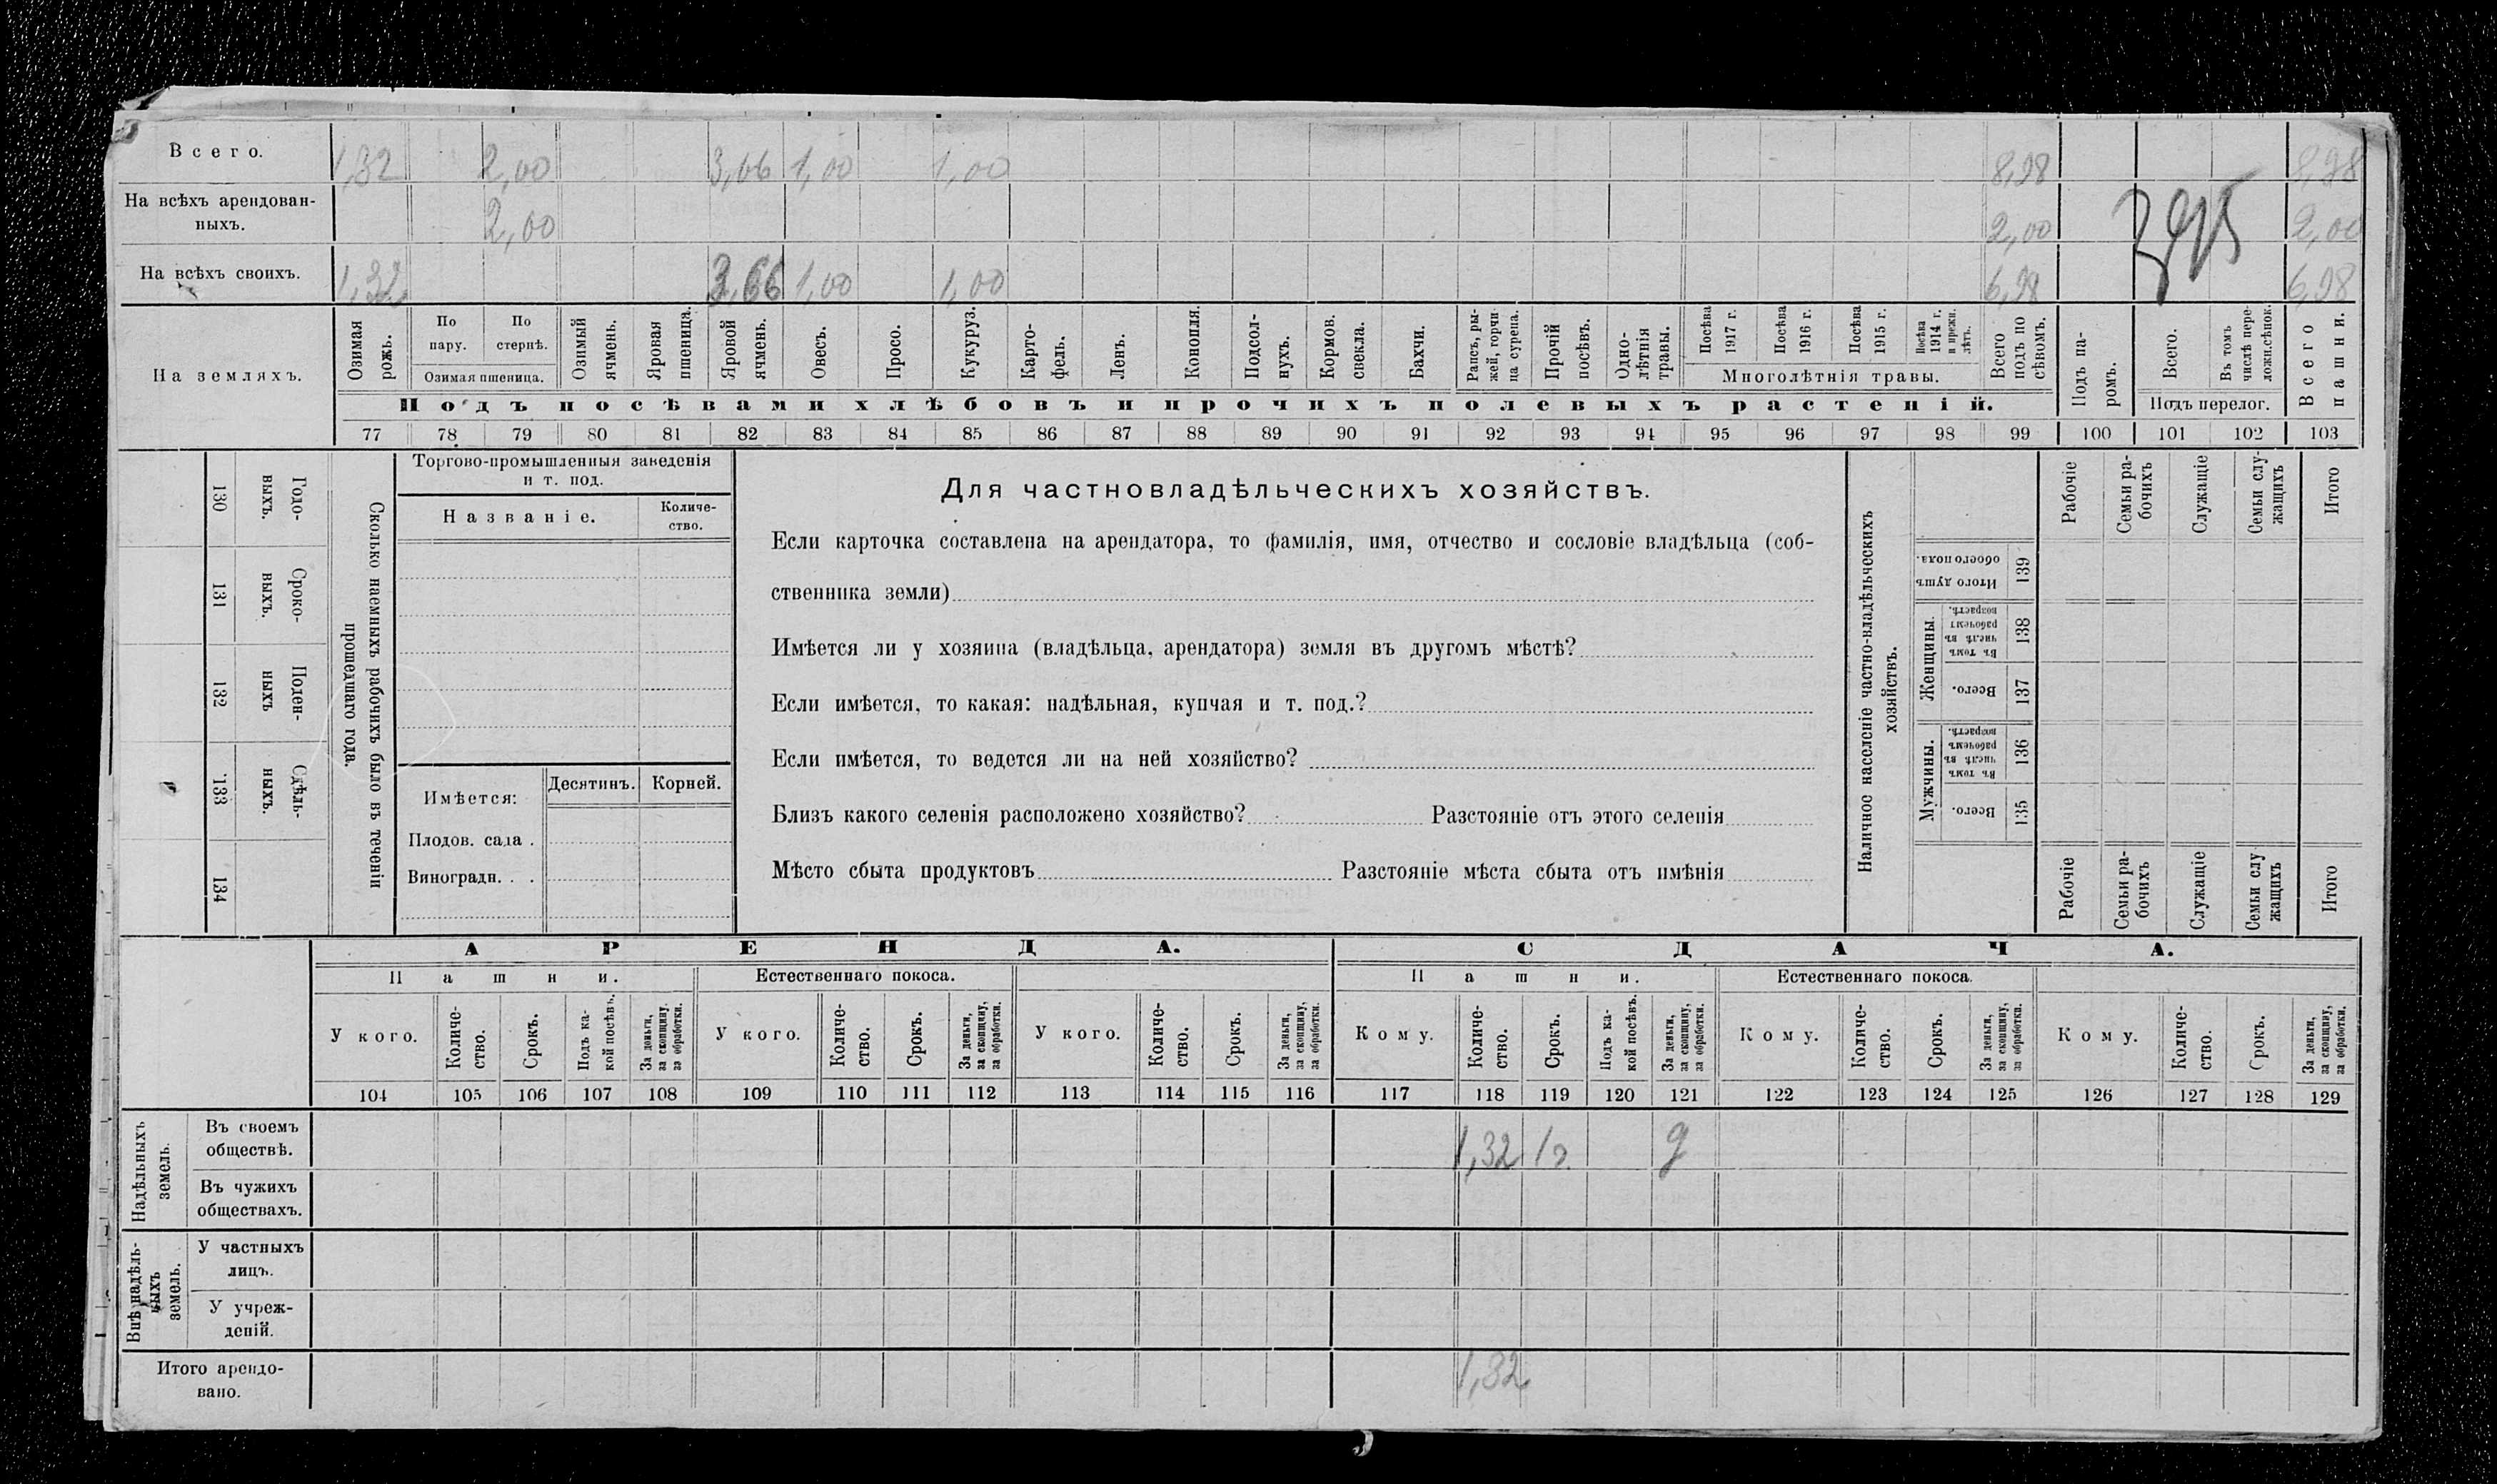 Всего. 1,32 2,00 3,66 1,00 1,00 8,98 8,98
На всѣхъ арендован-
ныхъ. 2,00 2,00 2,00
На всѣхъ своихъ. 1,32 3,66 1,00 1,00 6,98 6,98
На земляхъ.
Озимая рожь.
По пару.
По стернѣ.
Озимая пшеница.
Озимый ячмень.
Яровая пшеница.
Яровой ячмень.
Овесъ.
Просо.
Кукуруз.
Карто-
фель.
Ленъ.
Конопля.
Подсол-
нухъ.
Кормов. свекла.
Бахчи.
Рапсъ, ры-
жей, горчи-
ца сурепа.
Прочій посѣвъ.
Одно-
лѣтнія травы.
Посѣва 1917 г.
Посѣва 1916 г.
Посѣва 1915 г.
Посѣва 1914 г. и прежн. лѣтъ.
Многолѣтнія травы.
Всего подъ по
сѣвомъ.
Подъ па-
ромъ.
Всего.
Въ томъ числѣ пере-
ложн.сѣнок.
Подъ перелог.
Всего пашни.
Подъ посѣвами хлѣбовъ и прочихъ полевыхъ растеній.
77 78 79 80 81 82 83 84 85 86 87 88 89 90 91 92 93 94 95 96 97 98 99 100 101 102 103
Годо-
выхъ.
130
Сроко-
выхъ.
131
Поден-
ныхъ
132
Сдѣль-
ныхъ.
133
134
Сколько наемныхъ рабочихъ было въ теченіи
прошедшаго года.
Торгово-промышленныя заведенія
и т. под.
Названіе.
Количе-
ство.
Имѣется:
Десятинъ.
Корней.
Плодов. сада .
Виноградн. . .
Для частновладѣльческихъ хозяйствъ.
Если карточка составлена на арендатора, то фамилія, имя, отчество и сословіе владѣльца (соб-
ственника земли)
Имѣется ли у хозяина (владѣльца, арендатора) земля въ другомъ мѣстѣ?
Если имѣется, то какая: надѣльная, купчая и т. под.?
Если имѣется, то ведется ли на ней хозяйство?
Близъ какого селенія расположено хозяйство? Разстояніе отъ этого селенія
Мѣсто сбыта продуктовъ Разстояніе мѣста сбыта отъ имѣнія
Наличное населеніе частно-владѣльческихъ
хозяйствъ.
Рабочіе
Семьи ра-
бочихъ
Служащіе
Семьи слу-
жащихъ
Итого
Итого душъ
обоего пола.
139
Женщины.
Въ томъ числѣ въ рабочемъ возрастѣ.
138
Всего.
137
Мужчины.
Въ томъ числѣ въ рабочемъ возрастѣ.
136
Всего.
135
Рабочіе
Семьи ра-
бочихъ
Служащіе
Семьи слу
жащихъ
Итого
АРЕНДА. СДАЧА.
Пашни. Естественнаго покоса. Пашни. Естественнаго покоса.
У кого.
Количе-
ство.
Срокъ.
Подъ ка-
кой посѣвъ.
За деньги,
за скопщину,
за обработки.
У кого.
Количе-
ство.
Срокъ.
За деньги,
за скопщину,
за обработки.
У кого.
Количе-
ство.
Срокъ.
За деньги,
за скопщину,
за обработки.
Кому.
Количе-
ство.
Срокъ.
Подъ ка-
кой посѣвъ.
За деньги,
за скопщину,
за обработки.
Кому.
Количе-
ство.
Срокъ.
За деньги,
за скопщину,
за обработки.
Кому.
Количе-
ство.
Срокъ.
За деньги,
за скопщину,
за обработки.
104 105 106 107 108 109 110 111 112 113 114 115 116 117 118 119 120 121 122 123 124 125 126 127 128 129
Надѣльныхъ
земель.
Въ своемъ
обществѣ. 1,32 1г. д
Въ чужихъ
обществахъ.
Внѣ надѣль-
ныхъ
земель.
У частныхъ
лицъ.
У учреж-
деній.
Итого арендо-
вано. 1,32